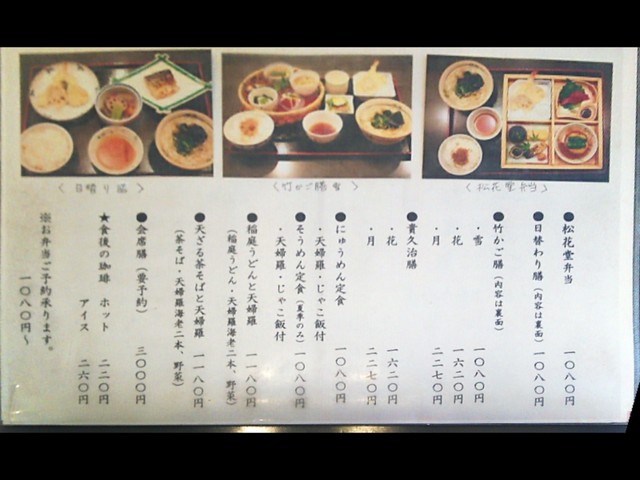 〈日替り膳〉
〈竹かご膳 雪〉
〈松花堂弁当〉
●松花堂弁当 一〇八〇円
●日替わり膳(内容は裏面) 一〇八〇円
●竹かご膳(内容は裏面)
・雪 一〇八〇円
・花 一六二〇円
・月 二二七〇円
●貴久治膳
・花 一六二〇円
・月 二二七〇円
●にゅうめん定食 一〇八〇円
・天婦羅・じゃこ飯付
●そうめん定食(夏季のみ) 一〇八〇円
・天婦羅・じゃこ飯付
●稲庭うどんと天婦羅 一一八〇円
(稲庭うどん・天婦羅海老二本、野菜)
●天ざる茶そばと天婦羅 一一八〇円
(茶そば・天婦羅海老二本、野菜)
●会席膳(要予約) 三〇〇〇円
★食後の珈琲 ホット 二一〇円
アイス 二六〇円
※お弁当ご予約承ります。
一〇八〇円~